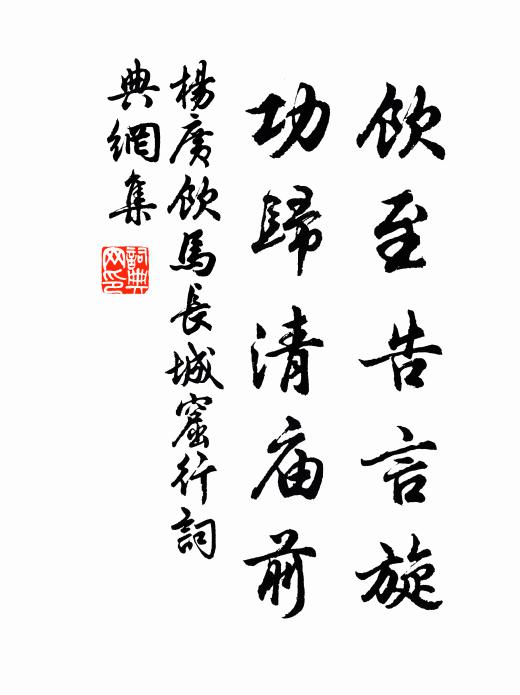 飲至告言旋
功歸清庙前
楊廣飲馬長城窟行詞
典網集
詞典
网印